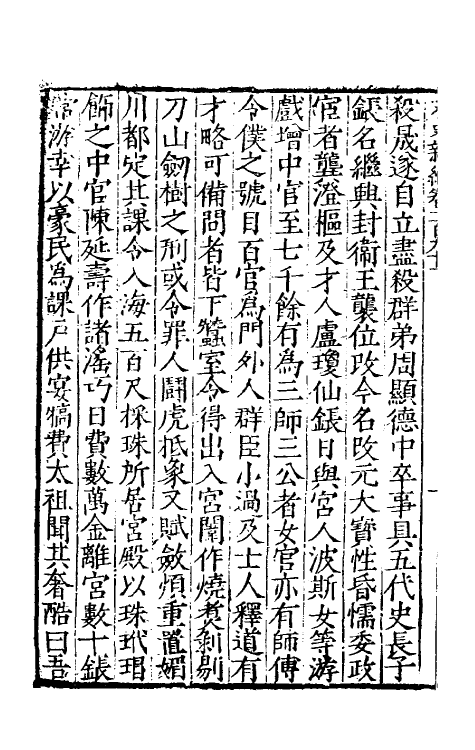 殺晟遂自立盡殺群弟周顯德中卒事具五代史長子
鋹名繼興封衛王襲位改今名改元大寶性昏懦委政
宦者龔澄樞及才人盧瓊仙鋹日與宮人波斯女等游
戲增中官至七千餘有為三師三公者女官亦有師傅
令僕之號目百官為門外人群臣小過及士人釋道有
才略可備問者皆下蠶室令得出入宮闈作燒煑剝剔
刀山劒樹之刑或令罪人鬬虎抵象又賦斂煩重置媚
川都定其課令入海五百尺採珠所居宮殿以珠玳瑁
飾之中官陳延壽作諸淫巧日費數萬金離宮數十鋹
常游幸以豪民為課戶供宴犒費太祖聞其奢酷曰吾